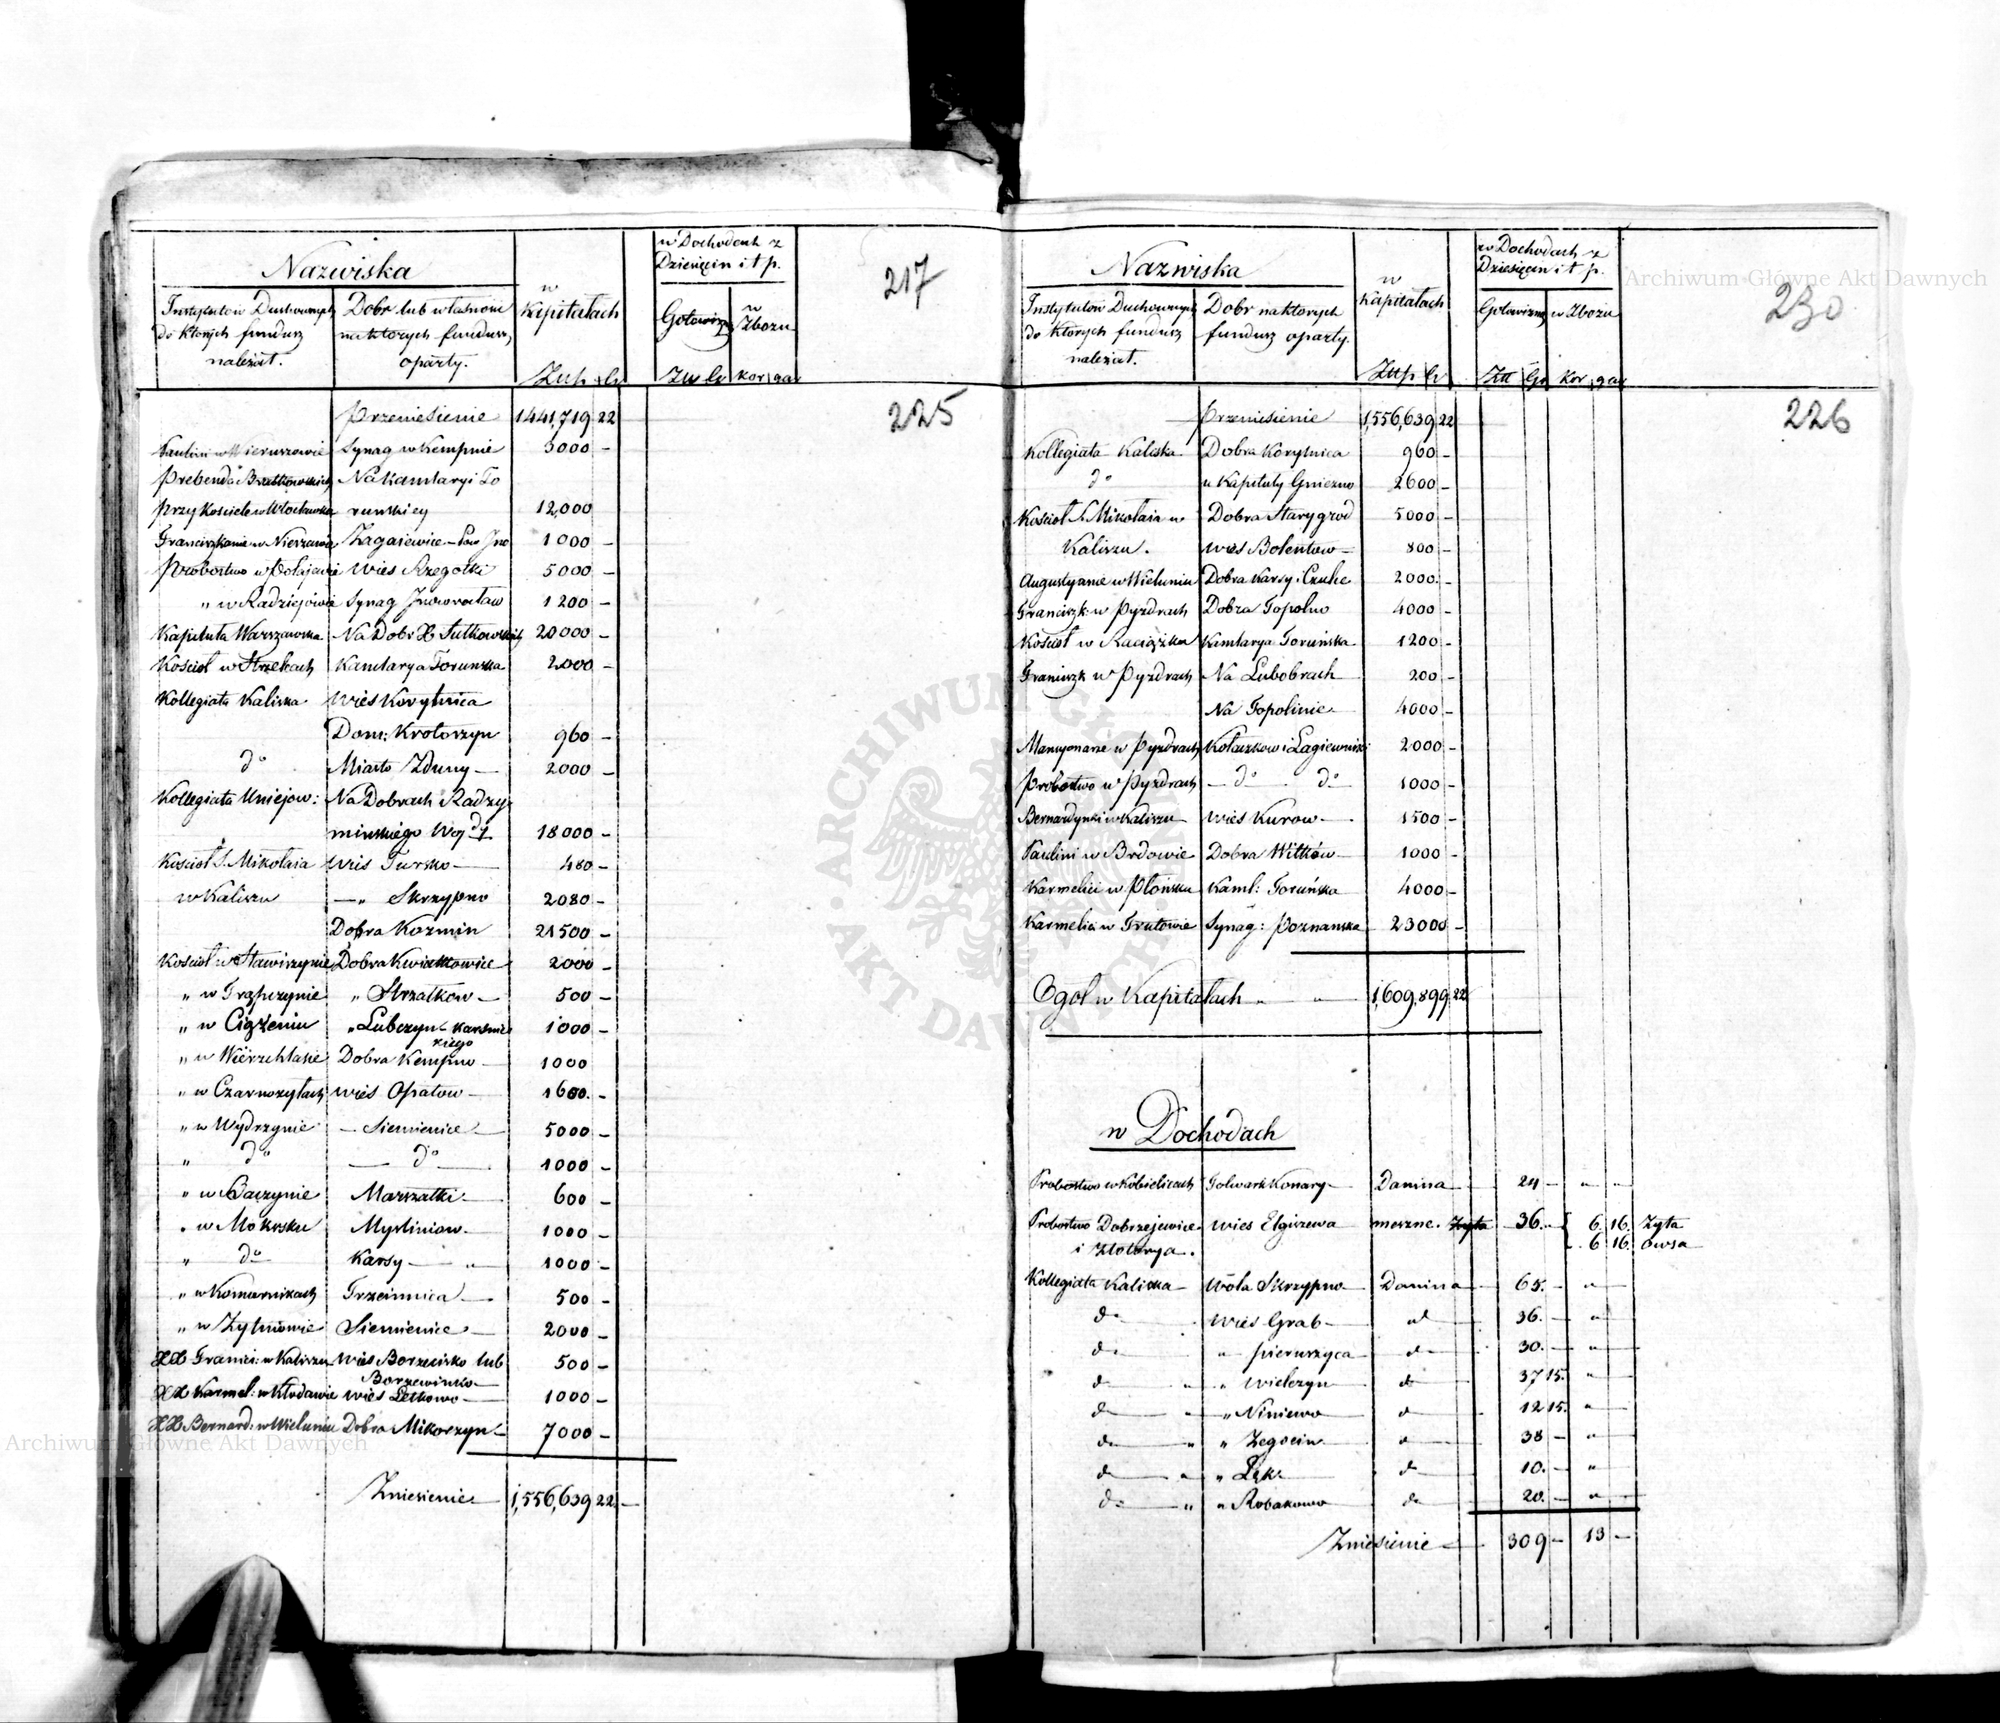 Nazwiska
Instytutów Duchownych
do których fundusz
należał.
Dobr lub własnośći
na których fundusz
oparty.
w
Kapitałach
Złtp. Gr
w Dochodach z
Dziesięcin i t p.
Gotowizną
w
Zbożu
Zł Gr
kor. gar
217
225
Przeniesienie 1441,719 22
Paulini w Wieruszowie Synag w Kempnie 3000 -
Prebenda Bratkowskich Na Kamlaryi To
przy Kościele w Włocławku runskiey 12,000
Franciszkanie w Nieszawie Zagaiewice - Pow Ino 1000 -
Probostwo w wies Rzegotki 5000 -
" w Radziejowie Synag Inowrocław 1200 -
Kapituła Warszawska Na Dobr X Sułkowskich 20000 -
Kościoł w Strzelcach Kamlarya Torunska 2000 -
Kollegiata Kaliska wies Korytnica
Dom: Krotoszyn 960 -
do Miasto Zduny - 2000 -
Kollegiata Uniejow: Na Dobrach Radzy
minskiego Woj dy 18000 -
Kościoł S. Mikołaia wies Tursko - 480 -
w Kaliszu — " Skrzypno 2080 -
Dobra Kozmin 21500 -
Kościoł w Stawiszynie Dobra Kwiatkowice 2000 -
" w Trąpczynie " Strzałkow - 500 -
" w Ciążeniu " Lubczyn - Karsnic
kiego 1000 -
" w Wierzchlasie Dobra Kempno - 1000
" w Czarnożyłach wies Opatow - 1600. -
" w Wydrzynie - Siemienice - 5000 -
" do — do — 1000 -
" w Raczynie Marszałki - 600 -
" w Mokrsku Mysliniow - 1000 -
" do Karsy — " 1000 -
" w Komornikach Trzcinnica - 500 -
" w Zytniowie Siemienice - 2000 -
XX Franci: w Kaliszu wies Borzecisko lub 500 -
Borzewisko -
XX Karmel: w Kłodawie wies Letkowo - 1000 -
XX Bernard: w Wieluniu Dobra Mikorzyn - 7000 -
Zniesienie 1,556,639 22 -
Nazwiska
Instytutów Duchownych
do których fundusz
należał.
Dobr na których
fundusz oparty.
w
Kapitałach
Złtp Gr
w Dochodach z
Dziesięcin i t p.
Gotowizną
w Zbożu
Złt Gr
Kor. gar
230
226
Przeniesienie 1,556,639 22
Kollegiata Kaliska Dobra Korytnica 960 -
do u Kapituły Gniezno 2600 -
Kościoł S. Mikołaia w Dobra Starygrod 5000 -
Kaliszu. wies Bolentow - 800 -
Augustyanie w Wieluniu Dobra Karsy i Czuhe 2000. -
Franciszk: w Pyzdrach Dobra Topolno 4000 -
Kościoł w Raciążku Kamlarya Toruńska 1200 -
Franciszk w Pyzdrach Na Lubobrach 200 -
Na Topolinie - 4000 -
Mansyonarze w Pyzdrach Kołaczkow i Łagiewniki 2000 -
Probostwo w Pyzdrach - do - do 1000 -
Bernardynki w Kaliszu wies Kurow - 1500 -
Paulini w Brdowie Dobra Witków - 1000 -
Karmelici w Płońsku Kaml: Toruńska 4000 -
Karmelici w Trutowie Synag: Poznanska 23000 -
Ogoł w Kapitałach " " 1,609,899 22
w Dochodach
Probostwo w Kobielicach Folwark Konary - Danina 24 - " -
Probostwo Dobrzejewice wies Elgiszewo meszne. Zyta 36. - 6 16. Zyta
i Złotorya. 6 16. owsa
Kollegiata Kaliska Wola Skrzypno - Danina 65. - "
do wies Grab - do 36. - "
do " Pieruszyca do 30. - "
do " " Wielczyn do 37 15. "
do " " Niniewo do 12 15. "
do " " Zegocin do 38 - "
do " " Łęk: do 10. - "
do " " Robakowo do 20. - "
Zniesienie 309 - 13 -
Archiwum Główne Akt Dawnych
Archiwum Główne Akt Dawnych
ARCHIWUM GŁÓWNE
AKT DAWNYCH